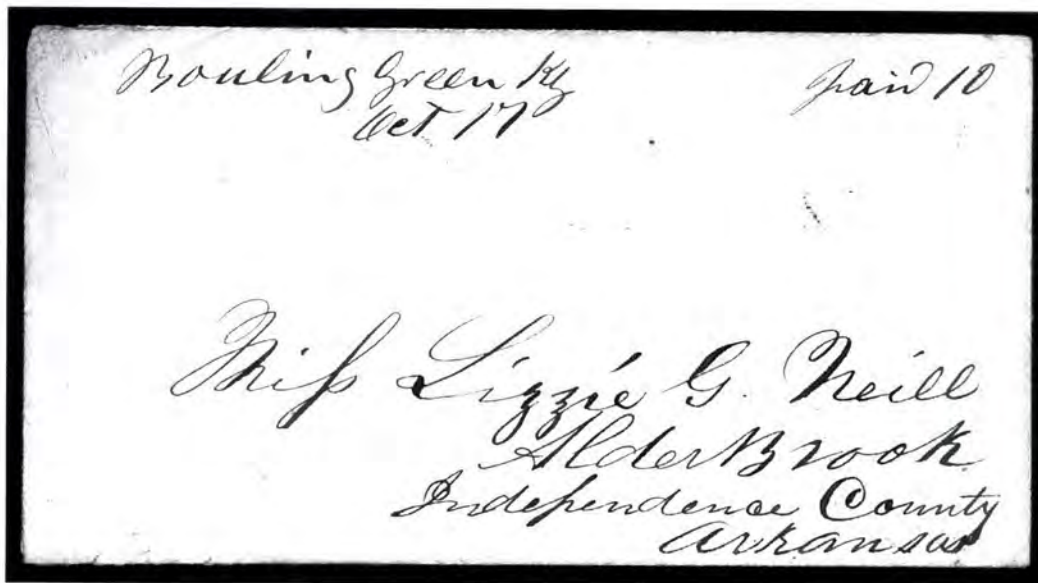 Bouling Green Ky paid 10
Oct. 17
Miss Lizzie G. Neill
Alder Brook
Independence County
Arkansas